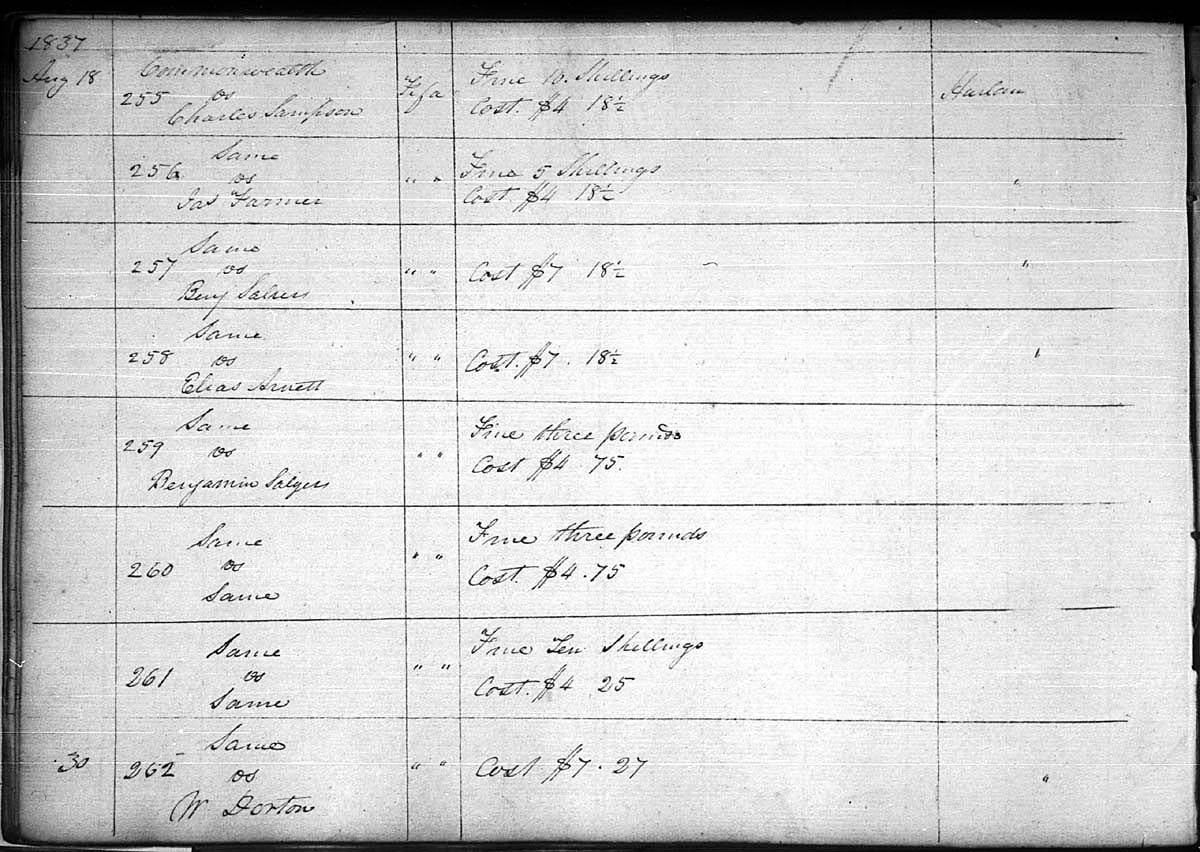 1837
Aug 18
Commonwealth
255 vs Fifa Fine 10 Shillings Harlan
Charles Sampson Cost. $4 18½
Same
256 vs " " Fine 5 Shillings "
Jas Farmer Cost $4 18½
Same
257 vs " " Cost $7 18½ "
Benj Salyers
Same
258 vs " " Cost. $7. 18½ "
Elias Arnett
Same Fine three pounds
259 vs " " Cost $4.75.
Benjamin Salyers
Same Fine three pounds
260 vs " " Cost. $4.75
Same
Same Fine Ten Shillings
261 vs " " Cost. $4 25
Same
Same
30 262 vs " " Cost $7.27 "
W Dorton